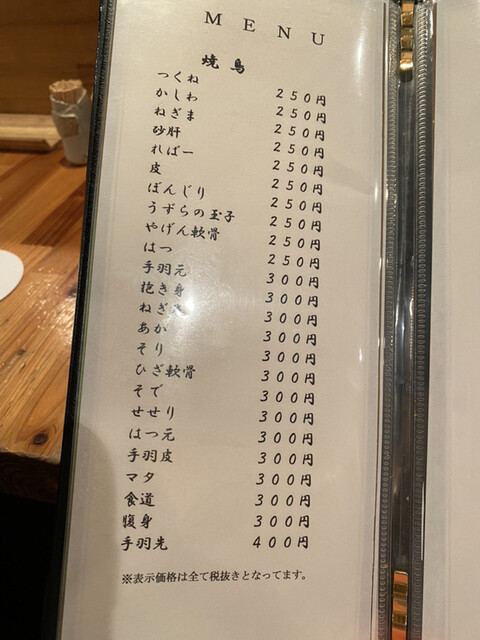 MENU
焼鳥
つくね 250円
かしわ 250円
ねぎま 250円
砂肝 250円
ればー 250円
皮 250円
ぼんじり 250円
うずらの玉子 250円
やげん軟骨 250円
はつ 250円
手羽元 300円
抱き身 300円
300円
あか 300円
そり 300円
ひざ軟骨 300円
そで 300円
せせり 300円
はつ元 300円
手羽皮 300円
マタ 300円
食道 300円
腹身 300円
手羽先 400円
※表示価格は全て税抜きとなってます。